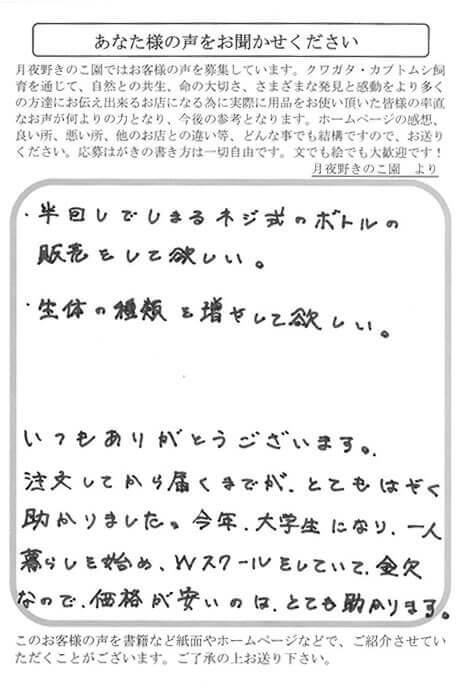 あなた様の声をお聞かせください
月夜野きのこ園ではお客様の声を募集しています。クワガタ・カブトムシ飼
育を通じて、自然との共生、命の大切さ、さまざまな発見と感動をより多く
の方達にお伝え出来るお店になる為に実際に用品をお使い頂いた皆様の率直
なお声が何よりの力となり、今後の参考となります。ホームページの感想、
良い所、悪い所、他のお店との違い等、どんな事でも結構ですので、お送り
ください。応募はがきの書き方は一切自由です。文でも絵でも大歓迎です！
月夜野きのこ園　より
・半回しでしまるネジ式のボトルの
販売をして欲しい。
・生体の種類を増やして欲しい。
いつもありがとうございます。
注文してから届くまでが、とてもはやく
助かりました。今年、大学生になり、一人
暮らしを始め、Wスクールをしていて、金欠
なので、価格が安いのは、とても助かります。
このお客様の声を書籍など紙面やホームページなどで、ご紹介させてい
ただくことがございます。ご了承の上お送り下さい。